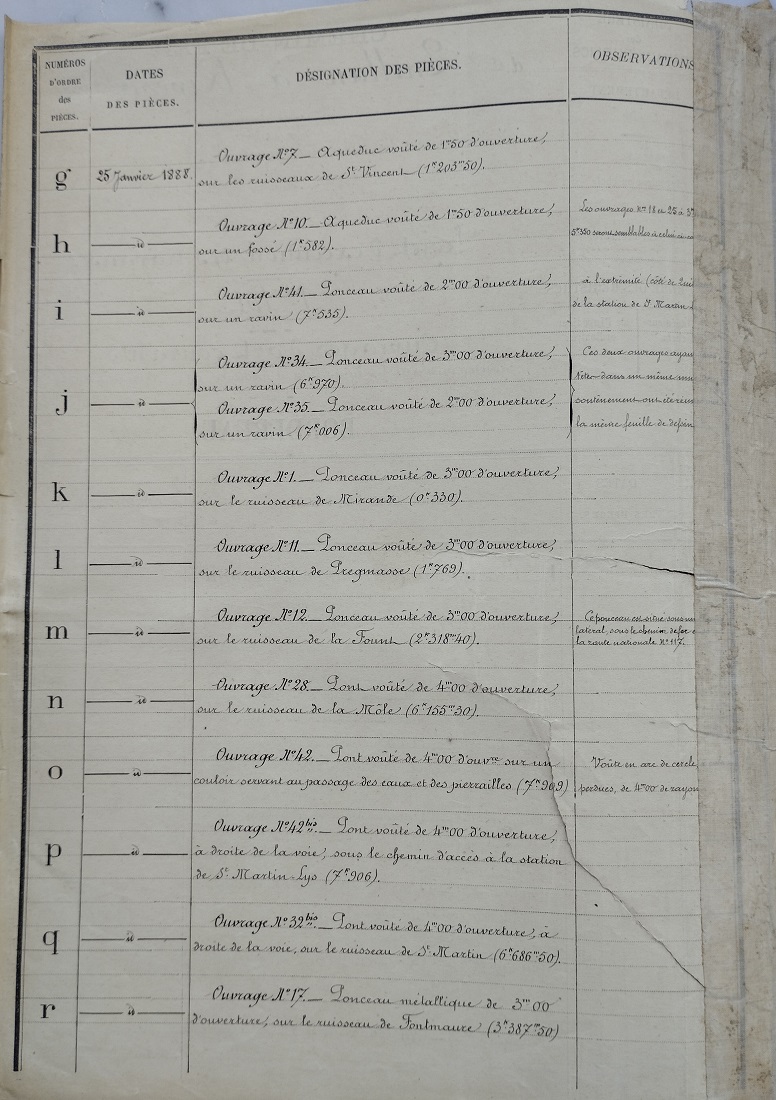 NUMÉROS
D'ORDRE
des
PIÈCES.
DATES
DES PIÈCES.
DÉSIGNATION DES PIÈCES.
OBSERVATIONS
g
25 Janvier 1888.
Ouvrage N° 7. — Aqueduc voûté de 1m50 d'ouverture,
sur les ruisseaux de St Vincent (1k203m50).
h
— id —
Ouvrage N° 10. — Aqueduc voûté de 1m50 d'ouverture,
sur un fossé (1k582).
Les ouvrages Nos 18 et 25 à
5k350 seront semblables à celui
i
— id —
Ouvrage N° 41. — Ponceau voûté de 2m00 d'ouverture,
sur un ravin (7k535).
à l'extrémité (côté de
de la station de St Martin
j
— id —
Ouvrage N° 34. — Ponceau voûté de 3m00 d'ouverture,
sur un ravin (6k970).
Ouvrage N° 35. — Ponceau voûté de 2m00 d'ouverture,
sur un ravin (7k006).
Ces deux ouvrages ayant
dans un même mur
soutènement ont été
la même feuille de dessin
k
— id —
Ouvrage N° 1. — Ponceau voûté de 3m00 d'ouverture,
sur le ruisseau de Mirande (0k330).
l
— id —
Ouvrage N° 11. — Ponceau voûté de 3m00 d'ouverture,
sur le ruisseau de Pregmasse (1k769).
m
— id —
Ouvrage N° 12. — Ponceau voûté de 3m00 d'ouverture,
sur le ruisseau de la Fount (2k318m40).
Ce ponceau est situé sous un
latéral, sous le chemin de fer
la route nationale N° 117.
n
— id —
Ouvrage N° 28. — Pont voûté de 4m00 d'ouverture,
sur le ruisseau de la Môle (6k155m30).
o
— id —
Ouvrage N° 42. — Pont voûté de 4m00 d'ouvre sur un
couloir servant au passage des eaux et des pierrailles (7k969)
Voûte en arc de cercle
perdues, de 4m00 de rayon
p
— id —
Ouvrage N° 42bis. — Pont voûté de 4m00 d'ouverture,
à droite de la voie, sous le chemin d'accès à la station
de St Martin-Lys (7k906).
q
— id —
Ouvrage N° 32bis — Pont voûté de 4m00 d'ouverture, à
droite de la voie, sur le ruisseau de St Martin (6k686m50).
r
— id —
Ouvrage N° 17. — Ponceau métallique de 3m00
d'ouverture, sur le ruisseau de Fontmaure (3k387m50)